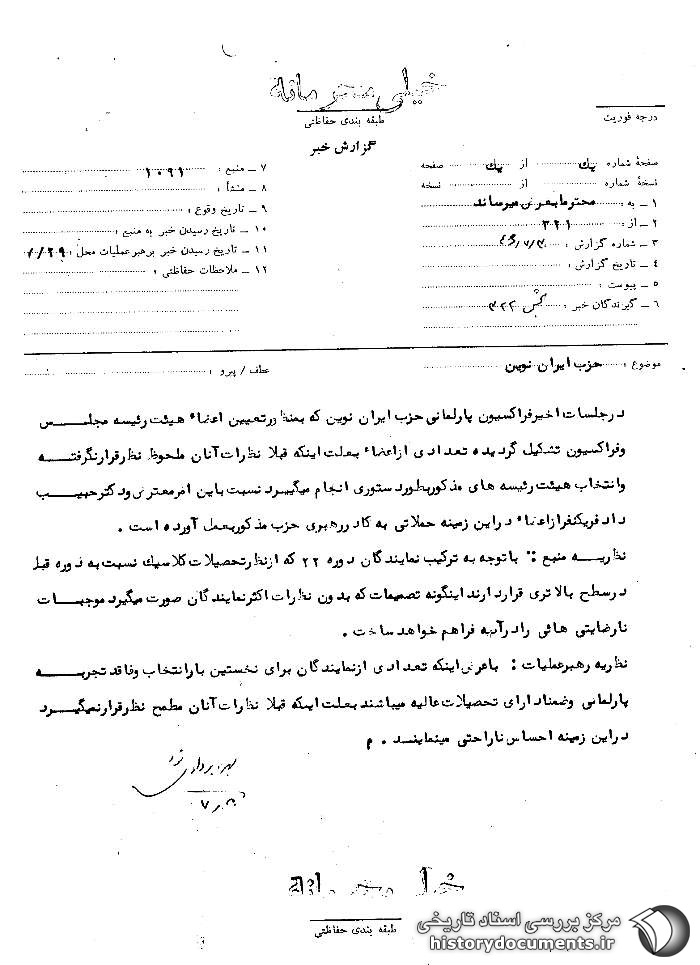 خیلی محرمانه
طبقه بندی حفاظتی
درجه فوریت
گزارش خبر
صفحهٔ شماره یک از یک صفحه
نسخهٔ شماره از نسخه
۱ ــ به : محترما بعرض میرساند
۲ ــ از : ۳۲۱
۳ ــ شماره گزارش :
۴ ــ تاریخ گزارش :
۵ ــ پیوست :
۶ ــ گیرندگان خبر : بخش ۳۲۲
۷ ــ منبع : ۱۰۹۱
۸ ــ منشأ :
۹ ــ تاریخ وقوع :
۱۰ ــ تاریخ رسیدن خبر به منبع :
۱۱ ــ تاریخ رسیدن خبر برهبر عملیات محل ۷/۲۹
۱۲ ــ ملاحظات حفاظتی :
موضوع : حزب ایران نوین
عطف / پیرو :
در جلسات اخیر فراکسیون پارلمانی حزب ایران نوین که بمنظور تعیین اعضاء هیئت رئیسه مجلس
وفراکسیون تشکیل گردیده تعدادی از اعضاء بعلت اینکه قبلا نظرات آنان ملحوظ نظر قرار نگرفته
وانتخاب هیئت رئیسه های مذکور بطور دستوری انجام میگیرد نسبت باین امر معترض ودکتر حبیب
داد فر یکنفر از اعضاء در این زمینه حملاتی به کادر رهبری حزب مذکور بعمل آورده است .
نظریه منبع : با توجه به ترکیب نمایندگان دوره ۲۲ که از نظر تحصیلات کلاسیک نسبت به دوره قبل
در سطح بالا تری قرار دارند اینگونه تصمیمات که بدون نظرات اکثر نمایندگان صورت میگیرد موجبات
نارضایتی هائی را در آتیه فراهم خواهد ساخت .
نظریه رهبر عملیات : با عرض اینکه تعدادی از نمایندگان برای نخستین بار انتخاب وفاقد تجربه
پارلمانی وضمنا دارای تحصیلات عالیه میباشند بعلت اینکه قبلا نظرات آنان مطمح نظر قرار نمیگیرد
در این زمینه احساس ناراحتی مینمایند . م
خیلی محرمانه
طبقه بندی حفاظتی
مرکز بررسی اسناد تاریخی
historydocuments.ir